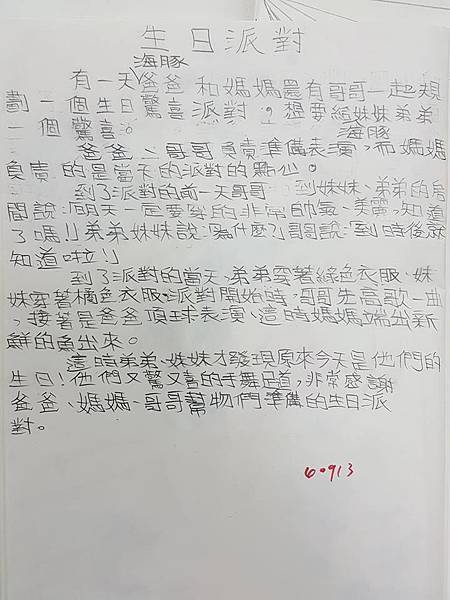 生日派對
海豚
有一天爸爸和媽媽還有哥哥一起規
劃一個生日驚喜派對，想要給妹妹弟弟
一個驚喜。
海豚
爸爸、哥哥負責準備表演，而媽媽
負責的是當天的派對的點心。
到了派對的前一天哥哥到妹妹、弟弟的房
間說:明天一定要穿的非常帥氣、美麗，知道
了嗎!!弟弟妹妹說:為什麼?哥哥說:到時後就
知道啦!!
到了派對的當天、弟弟穿著綠色衣服、妹
妹穿著橘色衣服、派對開始時，哥哥先高歌一曲
，接著是爸爸頂球表演、這時媽媽端出新
鮮的魚出來。
這時弟弟、妹妹才發現原來今天是他們的
生日!他們又驚又喜的手舞足道，非常感謝
爸爸、媽媽、哥哥幫物們準備的生日派
對。
60913